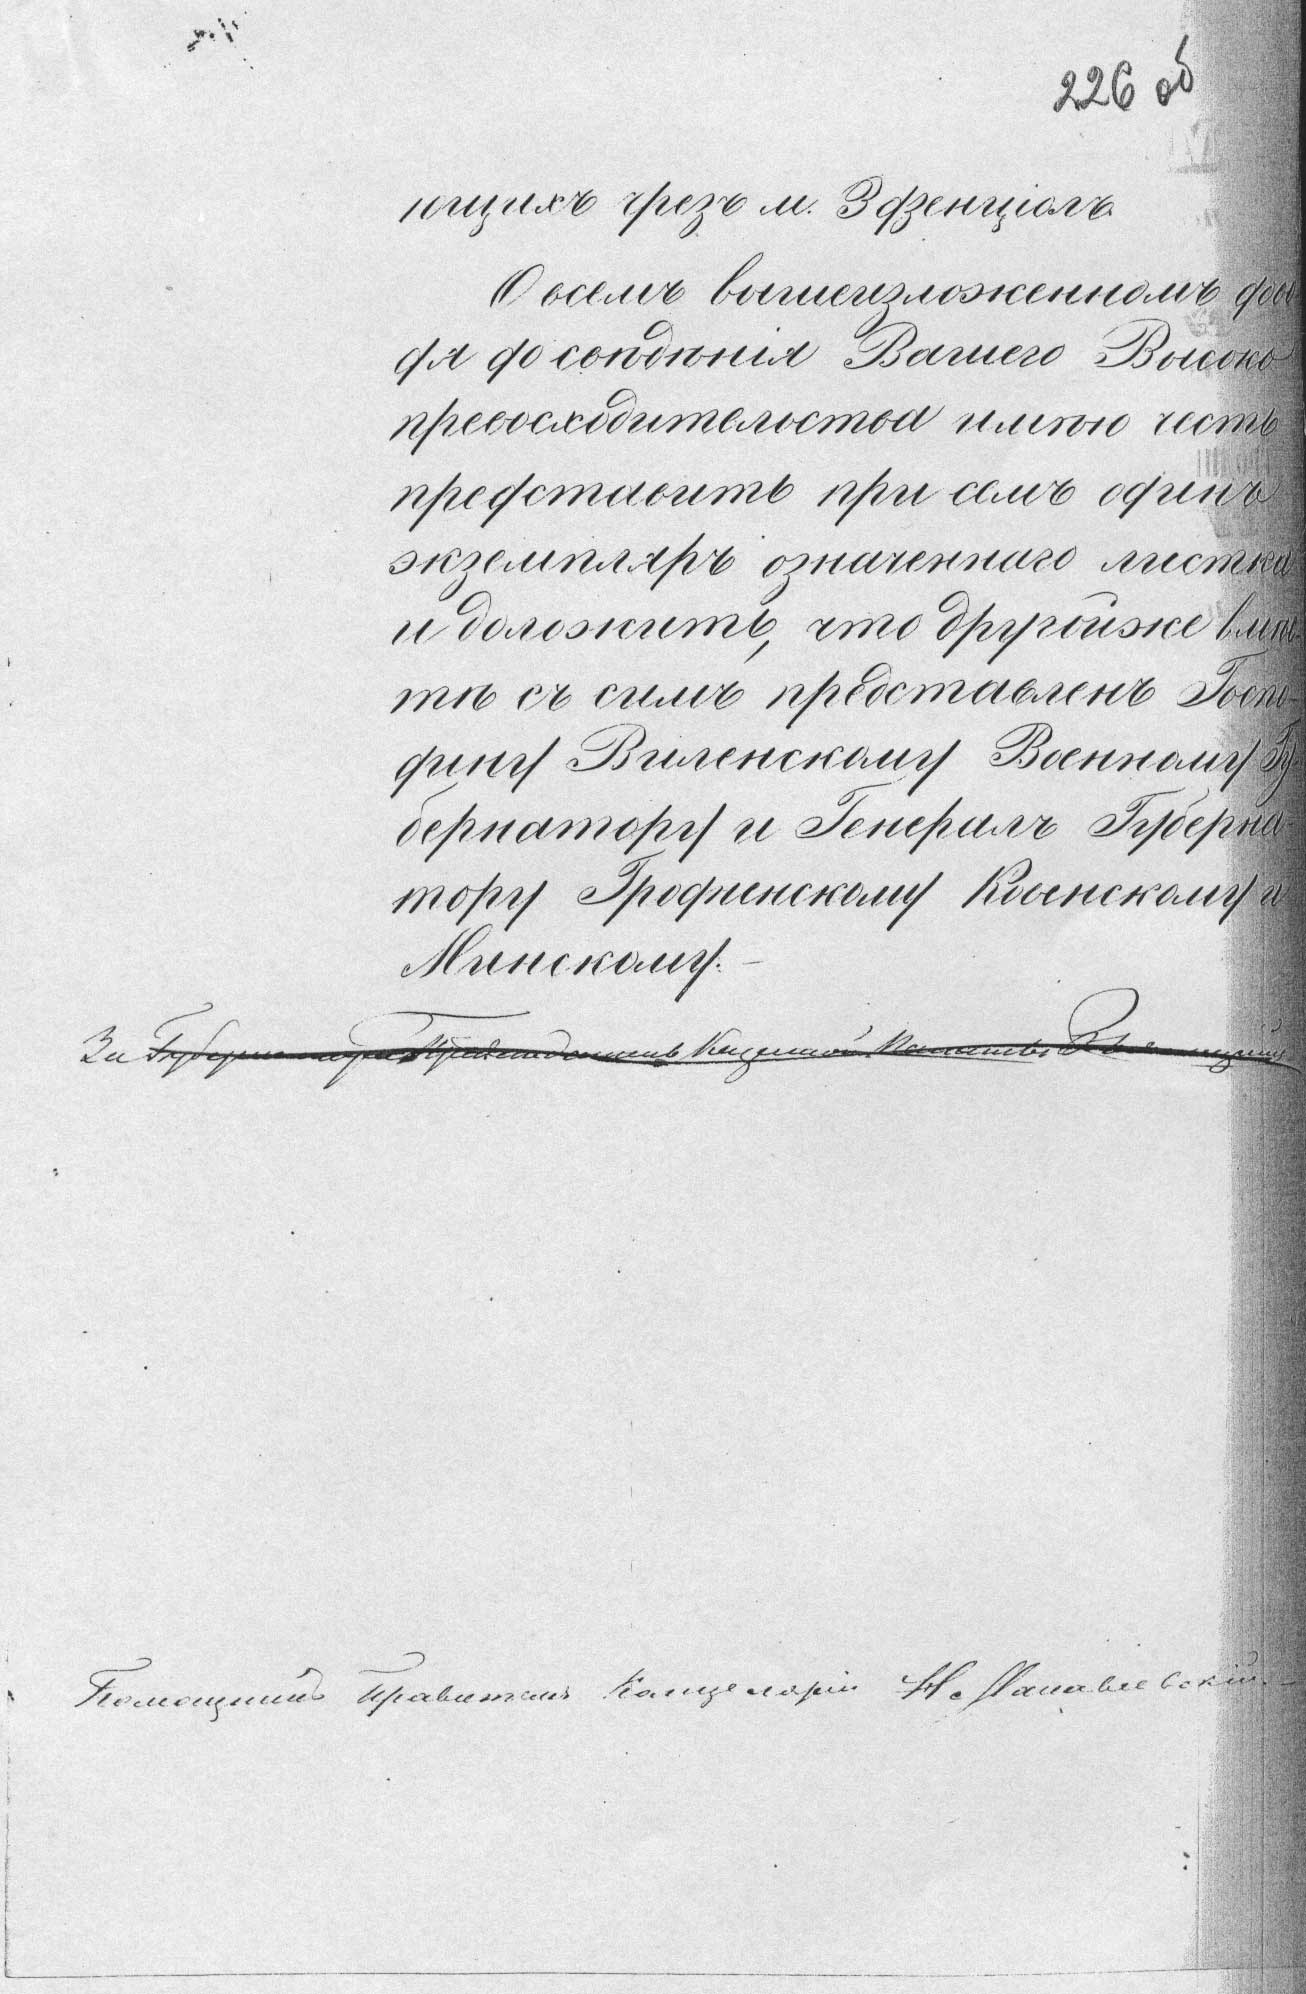 226 об
ющихъ чрезъ м. Эдзенціолъ.
О всемъ вышеизложенномъ дово
дя до свѣдѣнія Вашего Высоко
превосходительства имѣю честь
представить при семъ одинъ
экземпляръ означеннаго листка
и доложить, что другой же вмѣс
тѣ съ симъ представленъ Госпо-
дину Виленскому Военному Гу
бернатору и Генералъ Губерна-
тору Гродненскому Ковенскому и
Минскому. —
За Губернатора Предсѣдатель Казенной Палаты
Помощникъ Правителя Канцеляріи